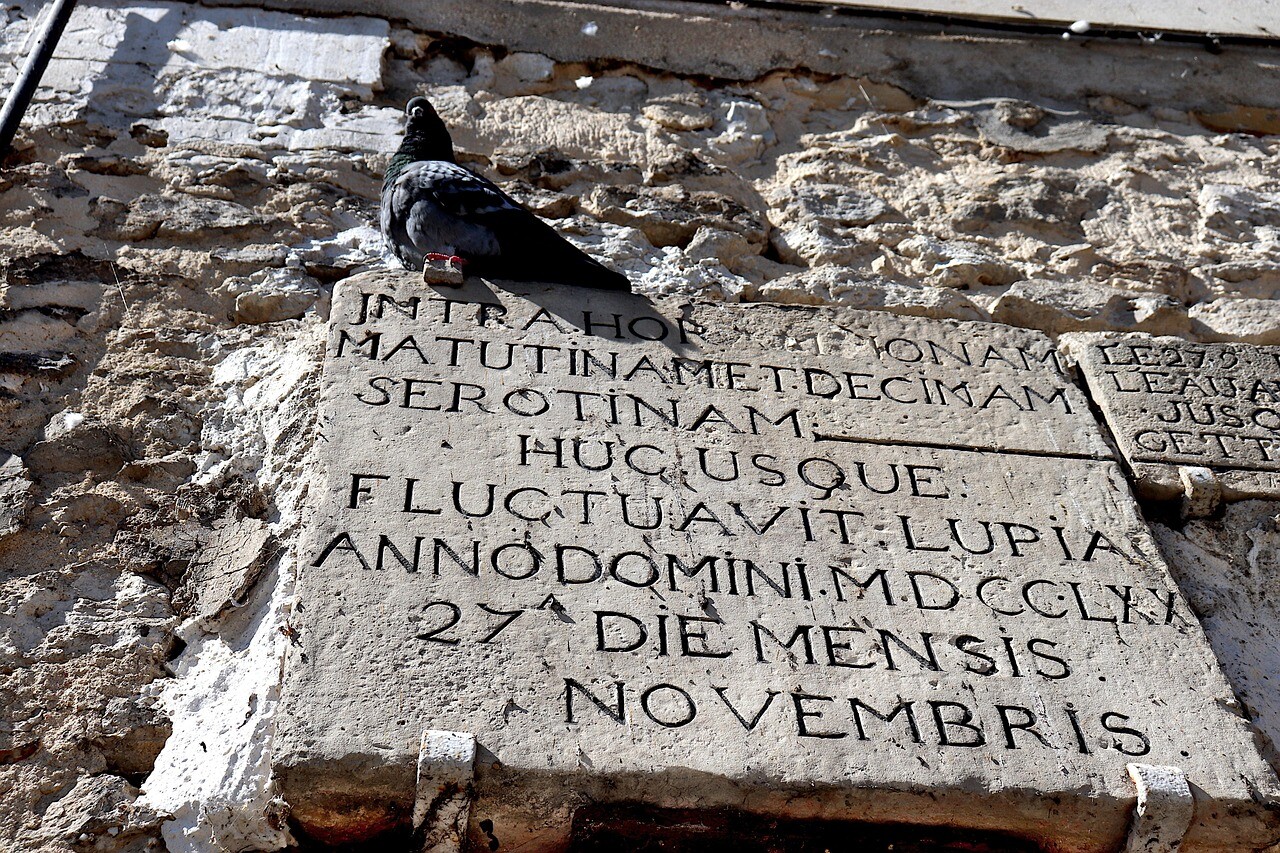 JNTRA HOR NONAM
MATUTINAM ET DECIMAM
SEROTINAM.
HUC USQUE.
FLUCTUAVIT. LUPIA
ANNO DOMINI. M. D CCLXX
27A DIE MENSIS.
NOVEMBRIS.
LE 27 9
LEAU A
JUSQ
CETT